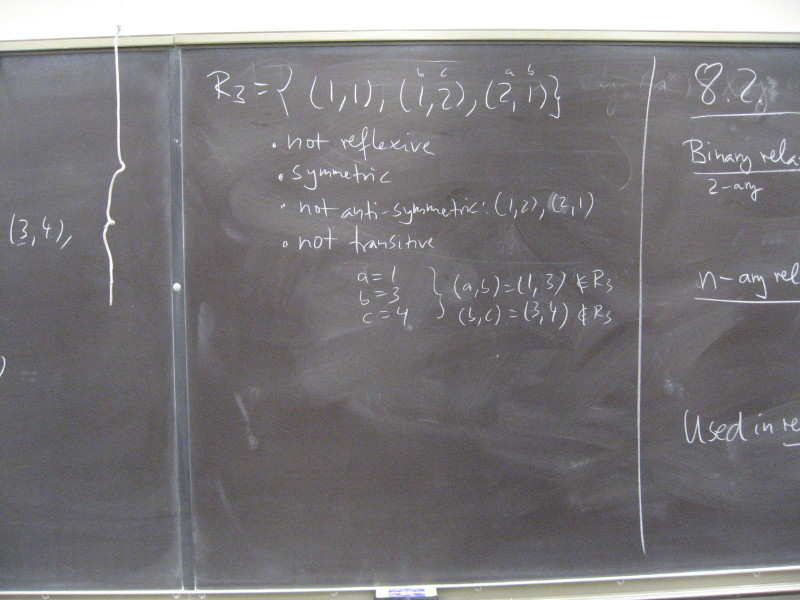 (3,4),
)
b c a b
R3 = { (1,1), (1,2), (2,1)}
• not reflexive
• symmetric
• not anti-symmetric: (1,2), (2,1)
• not transitive
a = 1
b = 3
c = 4
} (a,b) = (1,3) ∉ R3
(b,c) = (3,4) ∉ R3
8.2.
Binary rela
2-ary
n-ary rel
Used in re